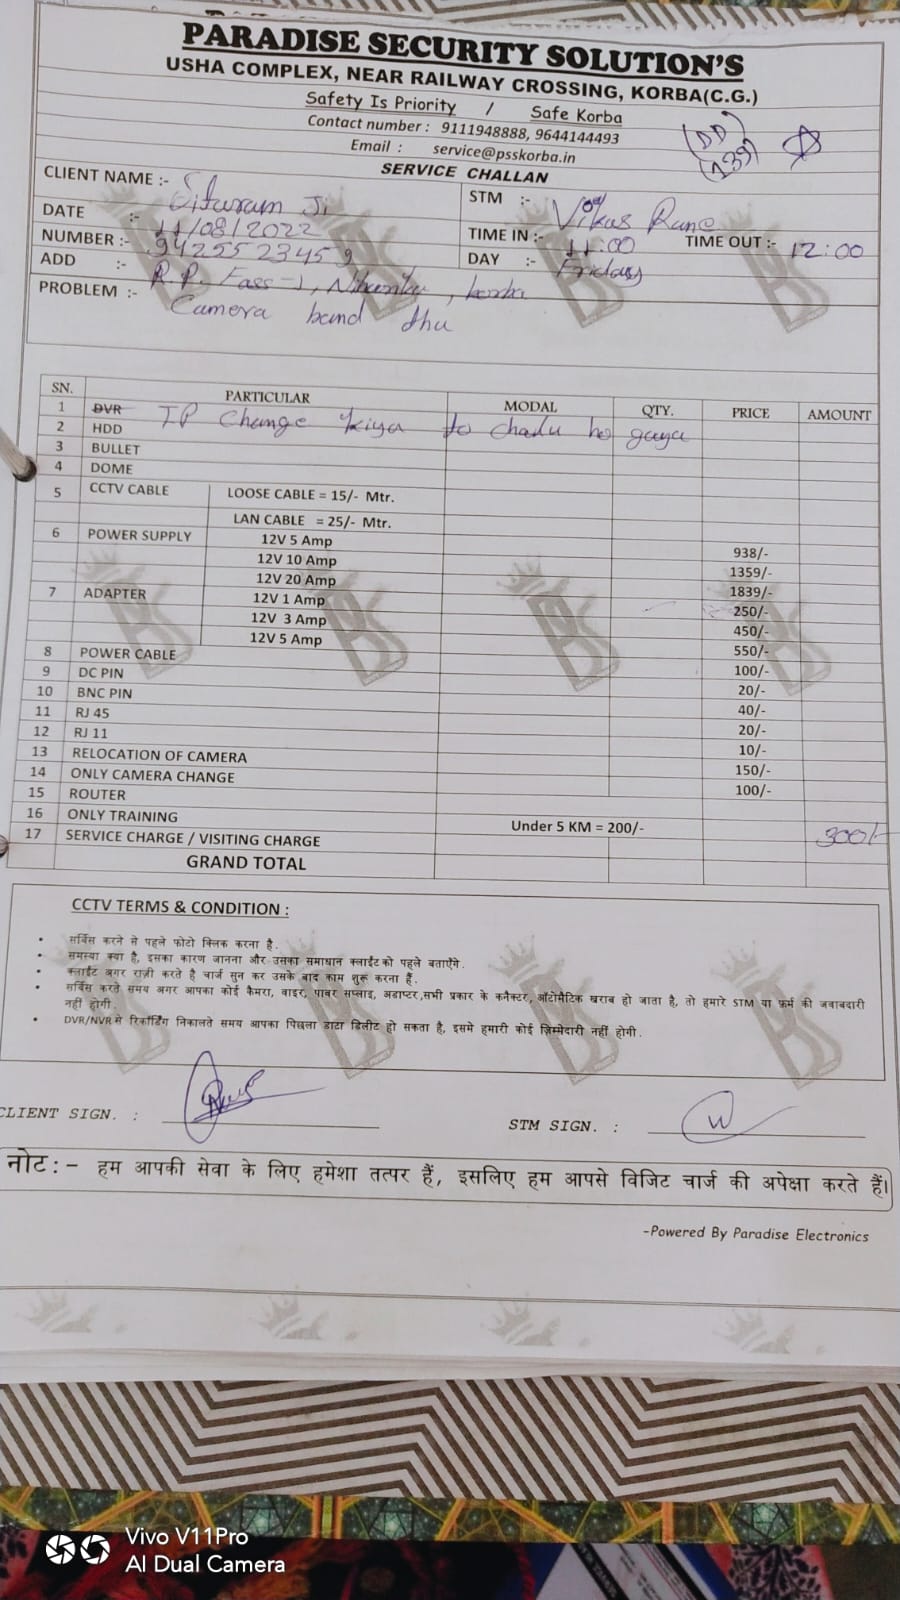 PARADISE SECURITY SOLUTION'S
USHA COMPLEX, NEAR RAILWAY CROSSING, KORBA(C.G.)
Safety Is Priority / Safe Korba
Contact number : 9111948888, 9644144493
Email : service@psskorba.in
(DD)
(139)
SERVICE CHALLAN
CLIENT NAME :- Sitaram Ji
STM :- Vikas Rane
DATE :- 11/08/2022
TIME IN :- 11:00 TIME OUT :- 12:00
NUMBER :- 9425523459
DAY :- Friday
ADD :- R.P. , korba
PROBLEM :- Camera band thu
SN. PARTICULAR MODAL QTY. PRICE AMOUNT
1 DVR IP Change kiya to chalu ho gaya
2 HDD
3 BULLET
4 DOME
5 CCTV CABLE LOOSE CABLE = 15/- Mtr.
LAN CABLE = 25/- Mtr.
6 POWER SUPPLY 12V 5 Amp 938/-
12V 10 Amp 1359/-
12V 20 Amp 1839/-
7 ADAPTER 12V 1 Amp 250/-
12V 3 Amp 450/-
12V 5 Amp 550/-
8 POWER CABLE 100/-
9 DC PIN 20/-
10 BNC PIN 40/-
11 RJ 45 20/-
12 RJ 11 10/-
13 RELOCATION OF CAMERA 150/-
14 ONLY CAMERA CHANGE 100/-
15 ROUTER
16 ONLY TRAINING
17 SERVICE CHARGE / VISITING CHARGE Under 5 KM = 200/- 300/-
GRAND TOTAL
CCTV TERMS & CONDITION :
• सर्विस करने से पहले फोटो क्लिक करना है.
• समस्या क्या है, इसका कारण जानना और उसका समाधान क्लाईंट को पहले बताएँगे.
• क्लाईंट अगर राज़ी करते है चार्ज सुन कर उसके बाद काम शुरू करना हैं.
• सर्विस करते समय अगर आपका कोई कैमरा, वाइर, पावर सप्लाइ, अडाप्टर,सभी प्रकार के कनैक्टर, ऑटोमैटिक खराब हो जाता है, तो हमारे STM या फ़र्म की जवाबदारी
नहीं होगी.
• DVR/NVR से रिकॉर्डिंग निकालते समय आपका पिछला डाटा डिलीट हो सकता है, इसमे हमारी कोई ज़िम्मेदारी नहीं होगी.
CLIENT SIGN. :
STM SIGN. :
नोट:- हम आपकी सेवा के लिए हमेशा तत्पर हैं, इसलिए हम आपसे विजिट चार्ज की अपेक्षा करते हैं।
-Powered By Paradise Electronics
Vivo V11Pro
AI Dual Camera